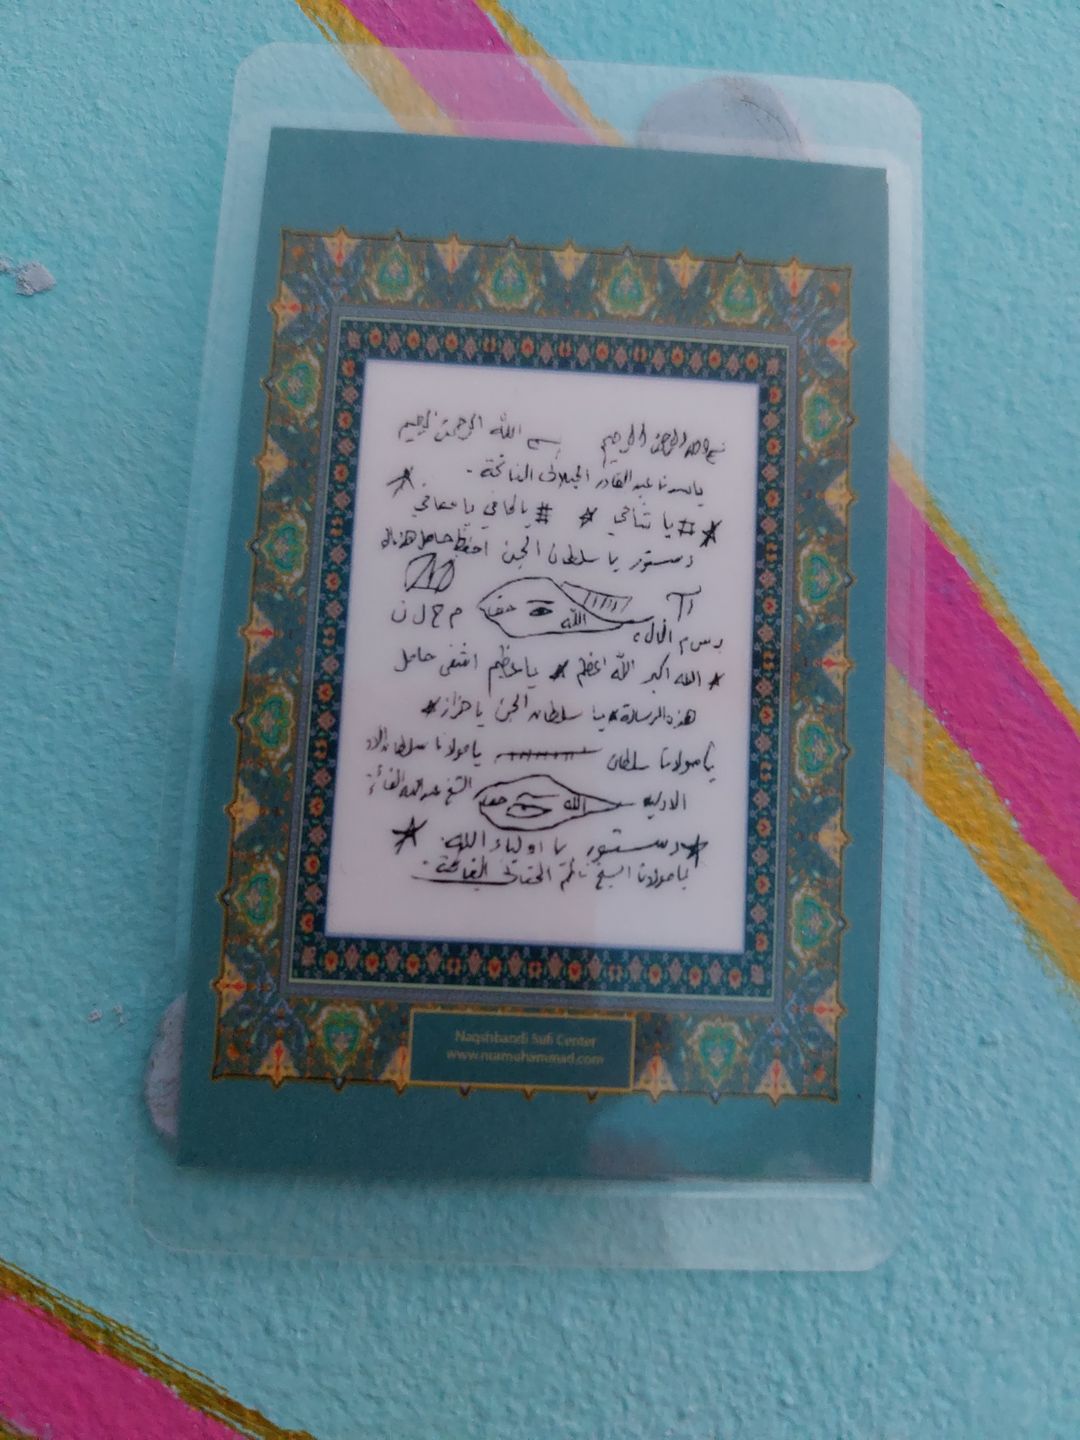 بسم الله الرحمن الرحيم بسم الله الرحمن الرحيم
يا سيدنا عبد القادر الجيلاني الفاتحة
# يا شافي * # يا كافي يا معافي
دستور يا سلطان الجن احفظ حامل هذه
م ح ل ن حق الله
ب س م
* الله اكبر الله اعظم * يا عظيم اشفي حامل
هذه الرسالة * يا سلطان الجن يا هزاز *
يا مولانا سلطان يا مولانا سلطان
الاوليه الله حق الشيخ عبد الله الفائز
* دستور يا اولياء الله *
يا مولانا الشيخ ناظم الحقاني الفاتحة
Naqshbandi Sufi Center
www.nurmuhammad.com